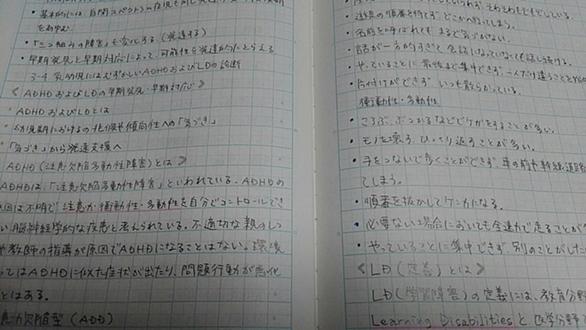 基本的には、自閉スペクトラム症児も同じ
「三つ組みの障害」も変化する(発達する)
早期発見と早期対応によって、可能性を発達的にとらえる
3-4 乳幼児にはむずかしいADHDおよびLDの診断
《ADHDおよびLDの早期発見・早期対応》
ADHDおよびLDとは
幼児期における 傾向性への「気づき」
「気づき」から発達支援へ
ADHD(注意欠陥多動性障害)とは》
ADHDは、「注意欠陥多動性障害」といわれている。ADHDの
因は不明で注意力・衝動性・多動性を自分でコントロールでき
い脳神経学的な疾患と考えられている。不適切な親のしつ
教師の指導が原因でADHDになることはない。環境
ってはADHDに似た症状が出たり、問題行動が悪化
とはある。
意欠陥型(ADD)
遊具の順番を待てず、どこかへ行ってしまう。
名前を呼ばれても まるで気づかない。
話が一方的すぎて 会話になっていなくても話し続ける。
やっていることに 最後まで集中できず、
片付けができず いつも散らかっている。
衝動性・多動性
ころぶ、ぶつかるなどケガをすることが多い。
モノを壊す、ひっくり返すことが多い。
手をつないで歩くことができず、車の前や幹線道路
てしまう。
順番を抜かしてケンカになる。
必要ない場合においても全速力で走ることが
やっていることに集中できず、別のことがした
《LD(定義)とは》
LD(学習障害)の定義には、教育分野
Learning Disabilitiesと医学分野